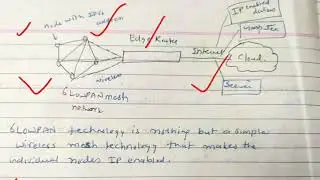 node with IPv6
IP enabled
devices
Computer
Edge Router
Internet
Cloud
wireless
Server
6LoWPAN mesh
network
6LOWPAN technology is nothing but a simple
wireless mesh technology that makes the
individual nodes IP enabled.